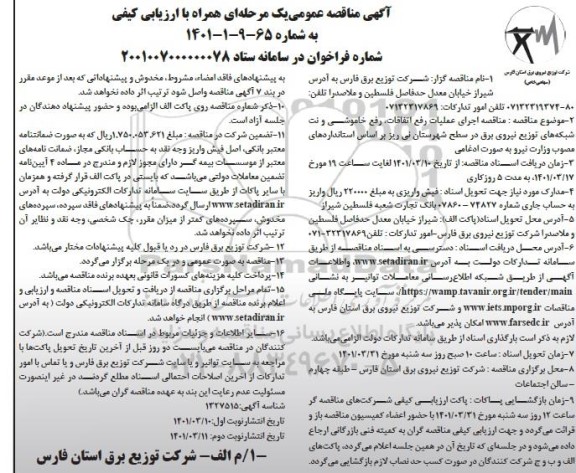 آگهی مناقصه عمومی یک مرحله‌ای همراه با ارزیابی کیفی
به شماره ۶۵-۹-۱-۱۴۰۱
شماره فراخوان در سامانه ستاد ۲۰۰۱۰۰۷۰۰۰۰۰۰۰۷۸
شرکت توزیع نیروی برق استان فارس
(سهامی خاص)
۱-نام مناقصه گزار: شرکت توزیع برق فارس به آدرس
شیراز خیابان معدل حدفاصل فلسطین و ملاصدرا تلفن:
۸۰-۰۷۱۳۲۳۱۹۳۷۴ تلفن امور تدارکات: ۰۷۱۳۲۳۱۷۸۶۹
۲-موضوع مناقصه : مناقصه اجرای عملیات رفع اتفاقات، رفع خاموشی و نت
شبکه‌های توزیع نیروی برق در سطح شهرستان نی ریز بر اساس استانداردهای
مصوب وزارت نیرو به صورت ادغامی
۳-زمان دریافت اسناد مناقصه: از تاریخ ۱۴۰۱/۰۳/۱۰ لغایت ساعت ۱۹ مورخ
۱۴۰۱/۰۳/۱۷، به مدت ۵ روزکاری
۴-مدارک مورد نیاز جهت تحویل اسناد : فیش واریزی به مبلغ ۲۲۰۰۰۰ ریال واریز
به حساب جاری شماره ۷۴۸۲۷-۰۷۸۶۰ بانک تجارت شعبه فلسطین شیراز
۵-آدرس محل تحویل اسناد(پاکت الف): شیراز خیابان معدل حدفاصل فلسطین
و ملاصدرا شرکت توزیع نیروی برق فارس-امور تدارکات : تلفن ۰۷۱-۳۲۳۱۷۸۶۹
۶-آدرس محل دریافت اسناد : دسترسی به اسناد مناقصه از طریق
سامانه تدارکات دولت به آدرس www.setadiran.ir، واطلاعات
آگهی از طریق شبکه اطلاع‌رسانی معاملات توانیر به نشانی
https://wamp.tavanir.org.ir/tender/main، سایت پایگاه ملی
مناقصات www.iets.mporg.ir و شرکت توزیع نیروی برق استان فارس به
آدرس www.farsedc.ir امکان پذیر می‌باشد.
لازم به ذکر است بارگذاری اسناد از طریق سامانه تدارکات دولت الزامی می‌باشد.
۷-زمان تحویل اسناد : ساعت ۱۰ صبح روز سه شنبه مورخ ۱۴۰۱/۰۳/۳۱
۸-محل برگزاری مناقصه : شرکت توزیع نیروی برق استان فارس - طبقه چهارم
- سالن اجتماعات
۹-زمان بازگشایی پاکات : پاکت ارزیابی کیفی شرکت‌های مناقصه گر
ساعت ۱۲ روز سه شنبه مورخ ۱۴۰۱/۰۳/۳۱ با حضور اعضاء کمیسیون مناقصه باز و
قرائت می‌گردد و جهت ارزیابی کیفی مناقصه گران به کمیته فنی بازرگانی ارجاع
داده می‌شود و در جلسه‌ای که تاریخ آن در همین جلسه اعلام می‌گردد، پاکت‌های
الف و ب و ج شرکت کنندگان در صورت کسب حد نصاب لازم بازگشایی می‌گردد.
به پیشنهادهای فاقد امضاء، مشروط، مخدوش و پیشنهاداتی که بعد از موعد مقرر
در بند ۷ آگهی مناقصه واصل شود ترتیب اثر داده نخواهد شد.
۱۰-ذکر شماره مناقصه روی پاکت الف الزامی بوده و حضور پیشنهاد دهندگان در
جلسه آزاد است.
۱۱-تضمین شرکت در مناقصه : مبلغ ۱,۷۵۰,۰۵۳,۶۲۱ریال که به صورت ضمانتنامه
معتبر بانکی، اصل فیش واریز وجه نقد به حساب بانکی مجاز، ضمانت نامه‌های
معتبر از موسسات بیمه گر دارای مجوز لازم و مندرج در ماده ۴ آیین‌نامه
تضمین معاملات دولتی می‌باشد که بایستی در پاکت الف قرار گرفته و همزمان
با سایر پاکات از طریق سایت سامانه تدارکات الکترونیکی دولت به آدرس
www.setadiran.ir ارسال گردد.ضمناً به پیشنهادهای فاقد سپرده، سپرده‌های
مخدوش، سپرده‌های کمتر از میزان مقرر، چک شخصی، وجه نقد و نظایر آن
ترتیب اثر داده نخواهد شد.
۱۲ -شرکت توزیع برق فارس در رد یا قبول کلیه پیشنهادات مختار می‌باشد.
۱۳-مناقصه به صورت عمومی و در یک مرحله برگزار می‌گردد.
۱۴-پرداخت کلیه هزینه‌های کسورات قانونی بعهده برنده مناقصه می‌باشد.
۱۵-تمام مراحل برگزاری مناقصه از دریافت و تحویل اسناد مناقصه و ارزیابی و
اعلام برنده مناقصه از طریق درگاه سامانه تدارکات الکترونیکی دولت ( به آدرس
www.setadiran.ir ) انجام خواهد شد.
۱۶-سایر اطلاعات و جزئیات مربوط در اسناد مناقصه مندرج است.(شرکت
کنندگان در مناقصه می‌بایست دو روز قبل از آخرین تاریخ تحویل پاکت‌ها با
مراجعه به سایت توانیر و یا سایت شرکت توزیع برق فارس و یا تماس با امور
تدارکات از آخرین اصلاحات احتمالی اسناد مطلع گردند در غیر اینصورت
مسئولیت عدم رعایت این بند به عهده مناقصه گران می‌باشد.)
شناسه آگهی: ۱۳۲۷۵۱۵
تاریخ انتشارنوبت اول: ۱۴۰۱/۰۳/۱۰
تاریخ انتشارنوبت دوم: ۱۴۰۱/۰۳/۱۱
۱/م الف- شرکت توزیع برق استان فارس